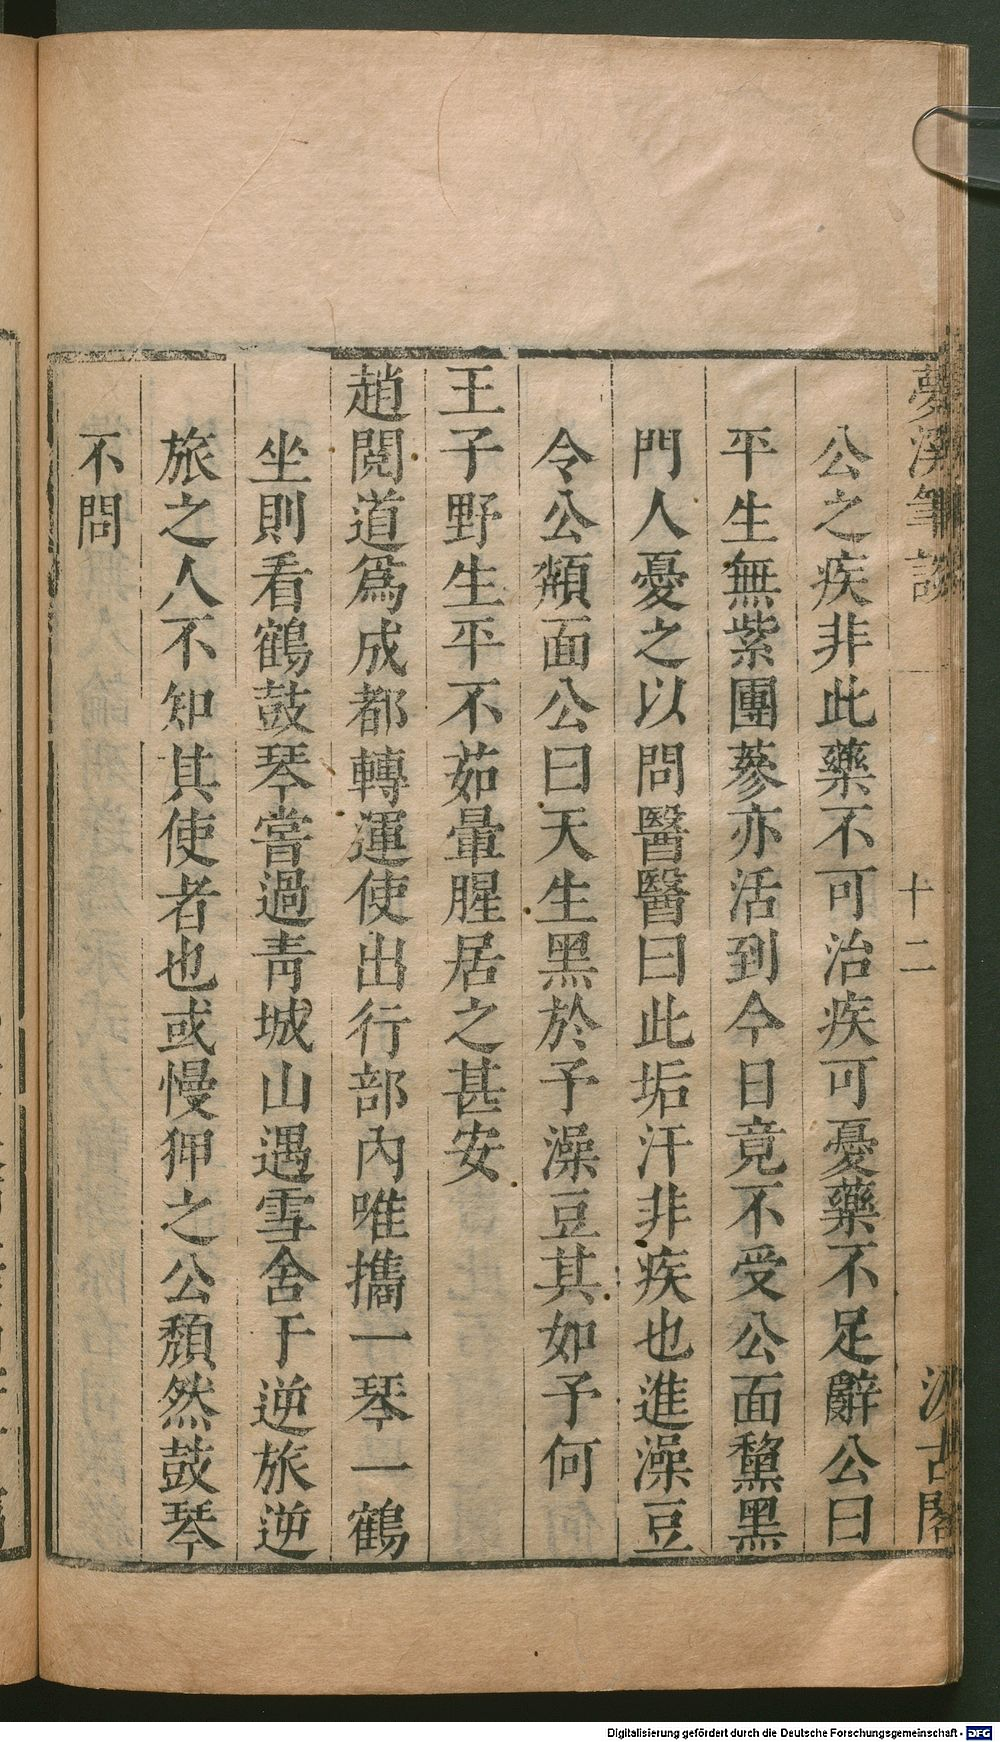 夢溪筆談
十二
汲古閣
公之疾非此藥不可治疾可憂藥不足辭公曰
平生無紫團蔘亦活到今日竟不受公面黧黑
門人憂之以問醫醫曰此垢汗非疾也進澡豆
令公頮面公曰天生黑於予澡豆其如予何
王子野生平不茹暈腥居之甚安
趙閱道爲成都轉運使出行部內唯攜一琴一鶴
坐則看鶴鼓琴嘗過靑城山遇雪舍于逆旅逆
旅之人不知其使者也或慢狎之公頹然鼓琴
不問
Digitalisierung gefördert durch die Deutsche Forschungsgemeinschaft - DFG